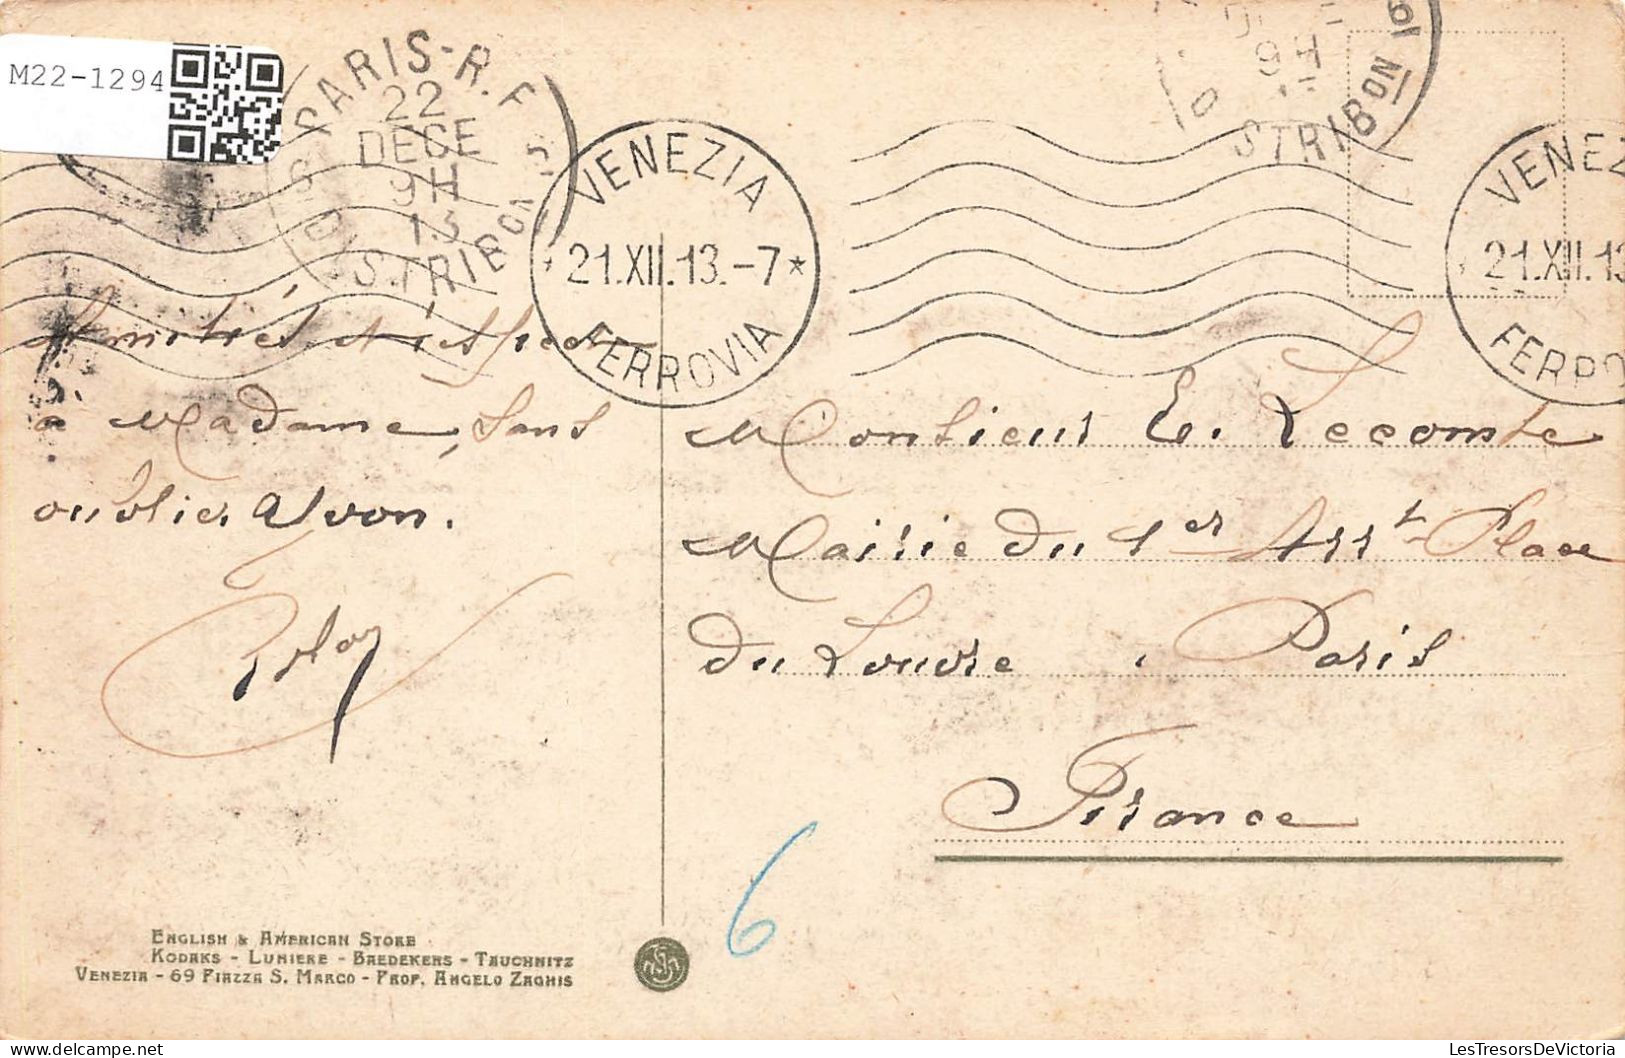 M22-1294
PARIS-R.F
22
DECE
9H
13
DISTRIBON
VENEZIA
21.XII.13.-7*
FERROVIA
9H
STRIBON
VENEZ
21.XII.13
FERRO
à Madame, sans
oublier
Monsieur E. Lecomte
Mairie du 1er Arrt- Place
du Louvre, Paris
France
6
ENGLISH & AMERICAN STORE
KODAKS - LUMIERE - BAEDEKERS - TAUCHNITZ
VENEZIA - 69 PIAZZA S. MARCO - PROP. ANGELO ZAGHIS
LesTresorsDeVictoria